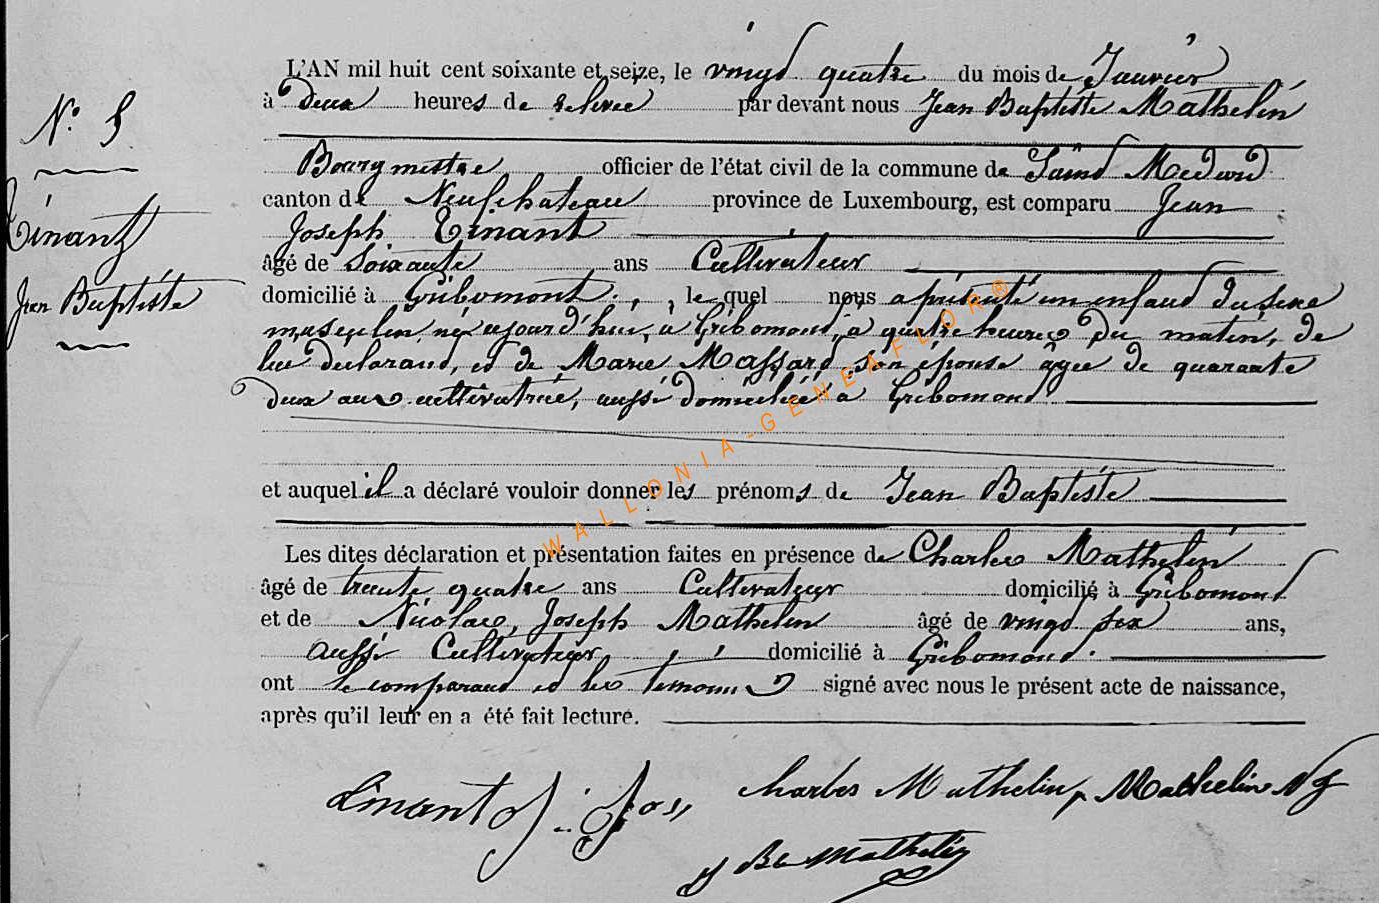 N.° 5
Tinant
Jean Baptiste
L'AN mil huit cent soixante et seize, le vingt quatre du mois de Janvier
à deux heures de relevée par devant nous Jean Baptiste Mathelin
Bourgmestre officier de l'état civil de la commune de Saint Medard
canton de Neufchateau province de Luxembourg, est comparu Jean
Joseph Tinant
âgé de Soixante ans Cultivateur
domicilié à Gribomont, le quel nous a présenté un enfant du sexe
masculin né aujourd'hui, à Gribomont, à quatre heures du matin, de
lui déclarant, et de Marie Massard son épouse âgée de quarante
deux ans cultivatrice, aussi domiciliée à Gribomont
et auquel il a déclaré vouloir donner les prénoms de Jean Baptiste
Les dites déclaration et présentation faites en présence de Charles Mathelin
âgé de trente quatre ans Cultivateur domicilié à Gribomont
et de Nicolas, Joseph Mathelin âgé de vingt six ans,
aussi Cultivateur domicilié à Gribomont.
ont le comparant et les témoins signé avec nous le présent acte de naissance,
après qu'il leur en a été fait lecture.
Tinant J. Jos, Charles Mathelin, Mathelin N J
J Bte Mathelin
WALLONIA-GENEAFLOR®